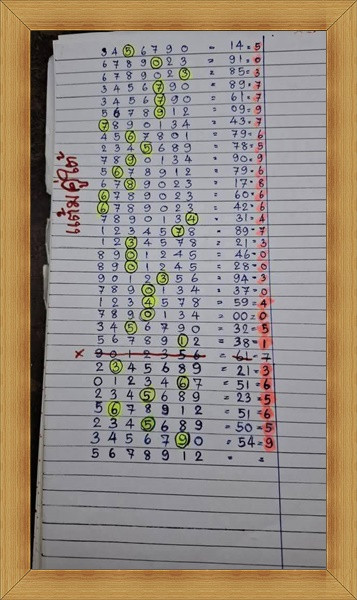 แต้มคู่ใต้
3 4 5 6 7 9 0 = 14 = 5
6 7 8 9 0 2 3 = 91 = 0
6 7 8 9 0 2 3 = 85 = 3
3 4 5 6 7 9 0 = 89 = 7
3 4 5 6 7 9 0 = 61 = 7
5 6 7 8 9 1 2 = 09 = 9
7 8 9 0 1 3 4 = 43 = 7
4 5 6 7 8 0 1 = 79 = 6
2 3 4 5 6 8 9 = 78 = 5
7 8 9 0 1 3 4 = 90 = 9
5 6 7 8 9 1 2 = 79 = 6
6 7 8 9 0 2 3 = 17 = 8
6 7 8 9 0 2 3 = 60 = 6
6 7 8 9 0 2 3 = 42 = 6
7 8 9 0 1 3 4 = 31 = 4
1 2 3 4 5 7 8 = 89 = 7
1 2 3 4 5 7 8 = 21 = 3
8 9 0 1 2 4 5 = 46 = 0
8 9 0 1 2 4 5 = 28 = 0
9 0 1 2 3 5 6 = 94 = 3
7 8 9 0 1 3 4 = 37 = 0
1 2 3 4 5 7 8 = 59 = 4
7 8 9 0 1 3 4 = 00 = 0
3 4 5 6 7 9 0 = 32 = 5
5 6 7 8 9 1 2 = 38 = 1
× 9 0 1 2 3 5 6 = 61 = 7
2 3 4 5 6 8 9 = 21 = 3
0 1 2 3 4 6 7 = 51 = 6
2 3 4 5 6 8 9 = 23 = 5
5 6 7 8 9 1 2 = 51 = 6
2 3 4 5 6 8 9 = 50 = 5
3 4 5 6 7 9 0 = 54 = 9
5 6 7 8 9 1 2 = =